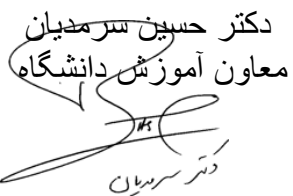 دکتر حسین سرمدیان
معاون آموزش دانشگاه
دکتر سرمدیان